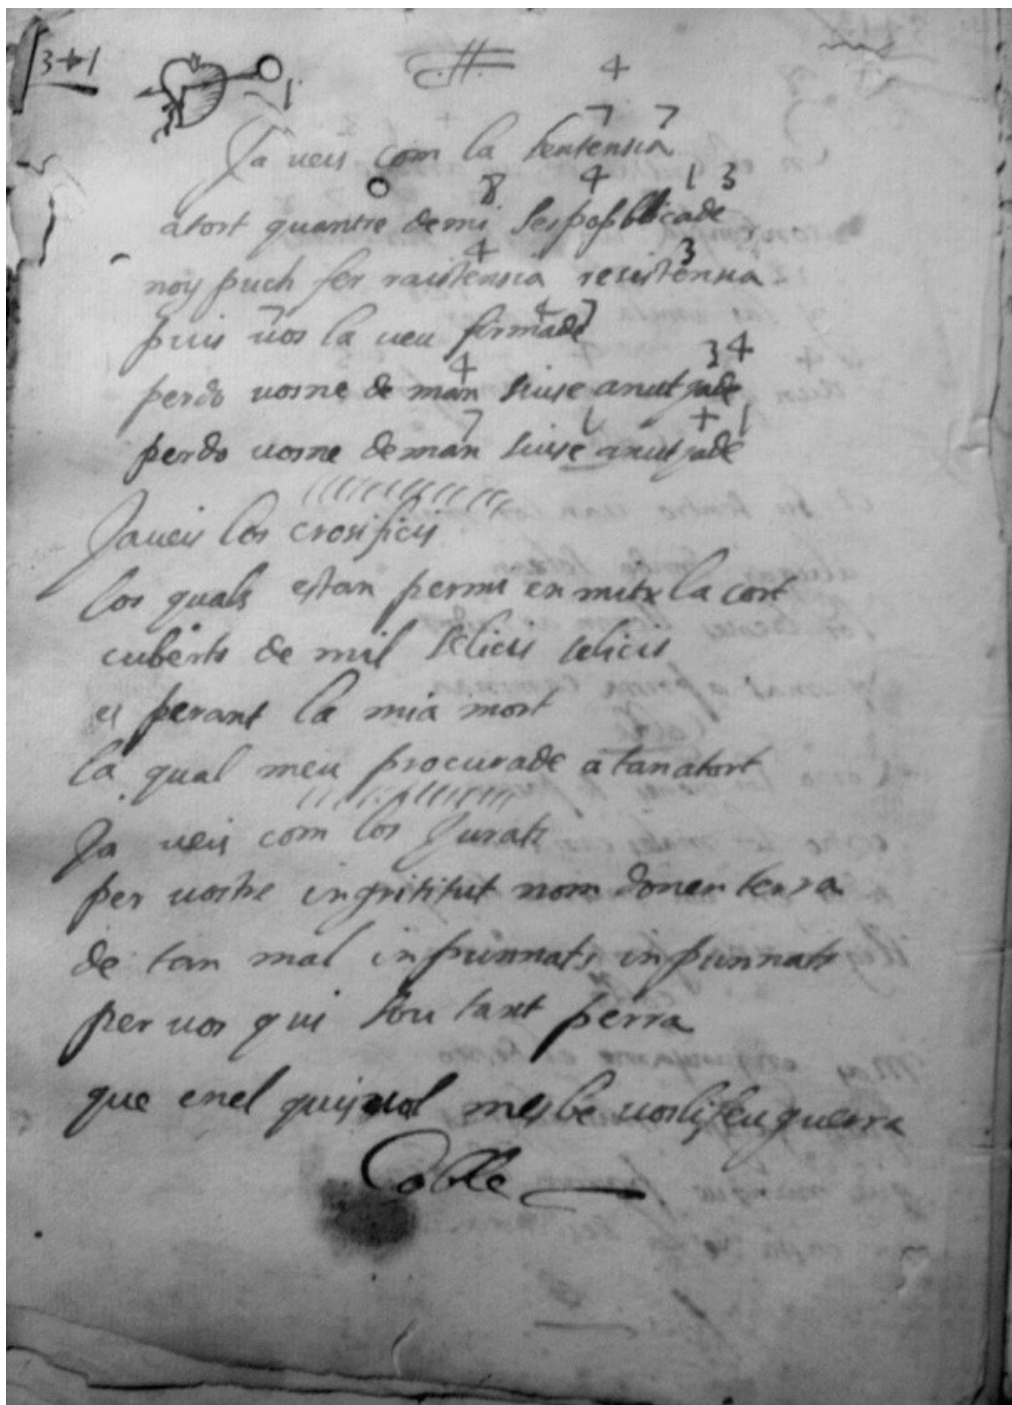 3+1
4
7 7
Ja veis com la sentensia
8 4 1 3
atort quantre demi ses popblicade
4 3
noy puch fer raistensia resistensia
7 4 7
puis vos la veu firmade
4 3 4
perdo vosne de man siuse anutjade
7 1 + 1
perdo vosne deman siuse anutjade
Javeis los crosificis
los quals estan permi en mitx la cort
cuberts de mil selicis selicis
es perant la mia mort
la qual meu procurade a tan atort
Ja veis com los Jurats
per vostre ingrititut nom donen terra
de tan mal inpunnats inpunnats
per vos qui sou tant perra
que enel quij vol mes be vos li feu guerra
Coble